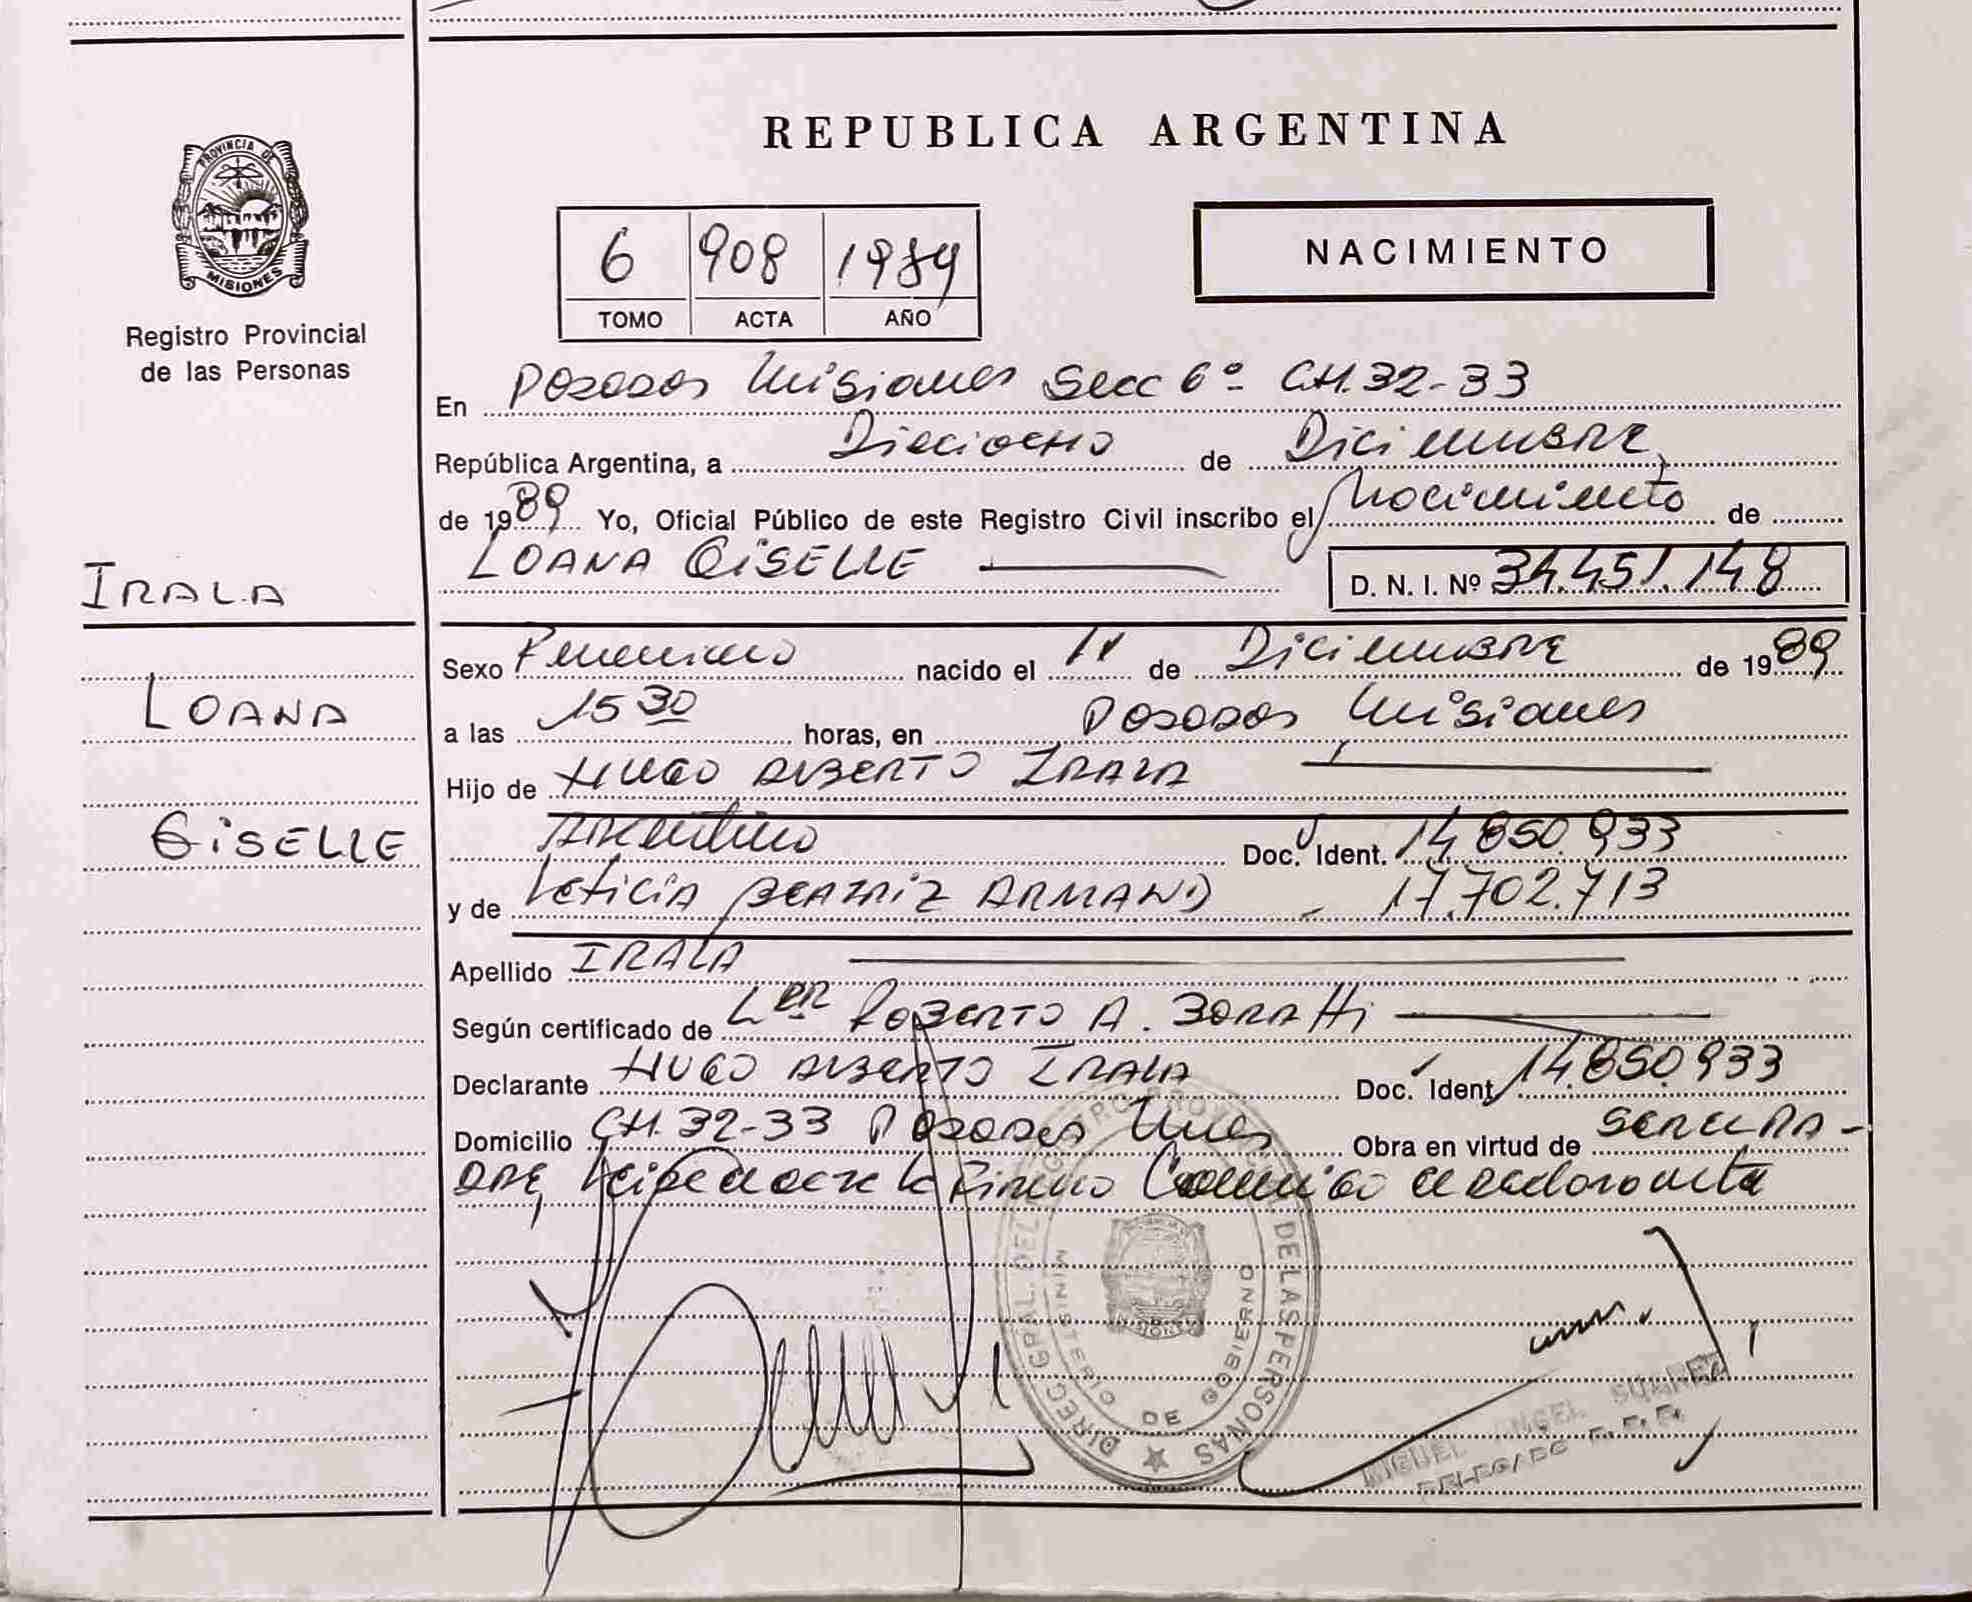 PROVINCIA DE
MISIONES
Registro Provincial
de las Personas
IRALA
LOANA
GISELLE
REPUBLICA ARGENTINA
6 908 1989
TOMO ACTA AÑO
NACIMIENTO
En Posadas Misiones Secc 6º CH. 32-33
República Argentina, a Dieciocho de Diciembre
de 1989 Yo, Oficial Público de este Registro Civil inscribo el Nacimiento de
LOANA GISELLE D. N. I. Nº 34.451.148
Sexo Femenino nacido el 11 de Diciembre de 1989
a las 15 30 horas, en Posadas Misiones
Hijo de HUGO ALBERTO IRALA
Argentino Doc. Ident. 14.850.933
y de Leticia BEATRIZ ARMAND - 17.702.713
Apellido IRALA
Según certificado de ROBERTO A. Boratti
Declarante HUGO ALBERTO IRALA Doc. Ident. 14.850.933
Domicilio CH. 32-33 Posadas Mnes Obra en virtud de SER EL PA-
DRE, Firma Conmigo el declarante
DIREC. GRAL. DEL REGISTRO PROVINCIAL DE LAS PERSONAS
MINISTERIO DE GOBIERNO
MIGUEL ANGEL SUAREZ
DELEGADO